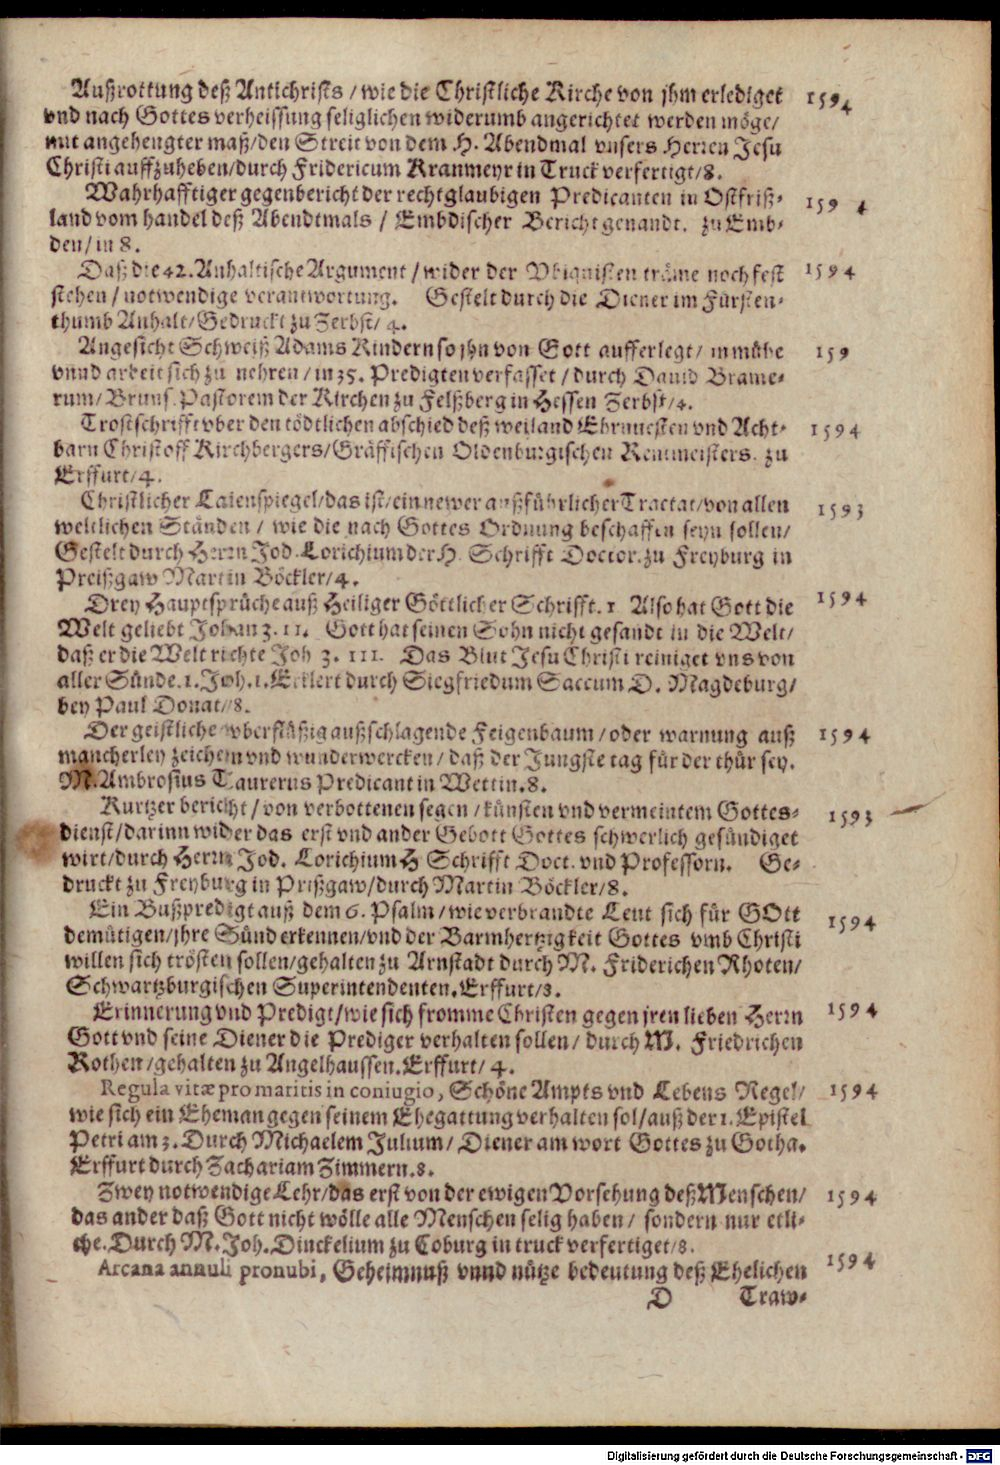 Außrottung deß Antichrists / wie die Christliche Kirche von jhm erlediget 1594
vnd nach Gottes verheissung seliglichen widerumb angerichtet werden möge/
mit angehengter maß/den Streit von dem H. Abendmal vnsers Herren Jesu
Christi auffzuheben/durch Fridericum Kranmeyr in Truck verfertigt/8.
Wahrhafftiger gegenbericht der rechtglaubigen Predicanten in Ostfriß- 159 4
land vom handel deß Abendtmals / Embdischer Bericht genandt. zu Emb-
den/in 8.
Daß die 42. Anhaltische Argument / wider der Vbiquisten träme noch fest 1594
stehen / notwendige verantwortung. Gestelt durch die Diener im Fürsten-
thumb Anhalt/Gedruckt zu Zerbst/ 4.
Angesicht Schweiß Adams Kindern so jhn von Gott aufferlegt/ in mühe 159
vnnd arbeit sich zu nehren / in 35. Predigten verfasset / durch Dauid Brame-
rum/ Bruns. Pastorem der Kirchen zu Felßberg in Hessen Zerbst/4.
Trostschrifft vber den tödtlichen abschied deß weiland Ehrnuesten vnd Acht- 1594
barn Christoff Kirchbergers/Gräffischen Oldenburgischen Rentmeisters. zu
Erffurt/4.
Christlicher Laienspiegel/das ist/ein newer außführlicher Tractat/von allen 1593
weltlichen Ständen / wie die nach Gottes Ordnung beschaffen seyn sollen/
Gestelt durch Herrn Jod. Lorichium der H. Schrifft Doctor. zu Freyburg in
Preißgaw Martin Böckler/4.
Drey Hauptsprüche auß Heiliger Göttlicher Schrifft. 1 Also hat Gott die 1594
Welt geliebt Johan 3. 11. Gott hat seinen Sohn nicht gesandt in die Welt/
daß er die Welt richte Joh 3. 111. Das Blut Jesu Christi reiniget vns von
aller Sünde.1.Joh.1.Erklert durch Siegfriedum Saccum D. Magdeburg/
bey Paul Donat/8.
Der geistliche vberflüßig außschlagende Feigenbaum / oder warnung auß 1594
mancherley zeichem vnd wunderwercken / daß der Jungste tag für der thür sey.
M. Ambrosius Taurerus Predicant in Wettin.8.
Kurtzer bericht / von verbottenen segen / künsten vnd vermeintem Gottes- 1593
dienst/darinn wider das erst vnd ander Gebott Gottes schwerlich gesündiget
wirt/durch Herrn Jod. Lorichium H Schrifft Doct. vnd Professorn. Ge-
druckt zu Freyburg in Prißgaw/durch Martin Böckler/8.
Ein Bußpredigt auß dem 6. Psalm / wie verbrandte Leut sich für GOtt 1594
demütigen/jhre Sünd erkennen/vnd der Barmhertzigkeit Gottes vmb Christi
willen sich trösten sollen/gehalten zu Arnstadt durch M. Friderichen Rhoten/
Schwartzburgischen Superintendenten.Erffurt/8.
Erinnerung vnd Predigt/wie sich fromme Christen gegen jren lieben Herrn 1594
Gott vnd seine Diener die Prediger verhalten sollen/ durch M. Friedrichen
Rothen/gehalten zu Angelhaussen.Erffurt/ 4.
Regula vitæ pro maritis in coniugio, Schöne Ampts vnd Lebens Regel/ 1594
wie sich ein Eheman gegen seinem Ehegattung verhalten sol/auß der 1. Epistel
Petri am 3. Durch Michaelem Julium/ Diener am wort Gottes zu Gotha.
Erffurt durch Zachariam Zimmern.8.
Zwey notwendige Lehr/das erst von der ewigen Vorsehung deß Menschen/ 1594
das ander daß Gott nicht wölle alle Menschen selig haben/ sondern nur etli-
che. Durch M. Joh. Dinckelium zu Coburg in truck verfertiget/8.
Arcana annuli pronubi, Geheimnuß vnnd nütze bedeutung deß Ehelichen 1594
D Traw-
Digitalisierung gefördert durch die Deutsche Forschungsgemeinschaft - DFG